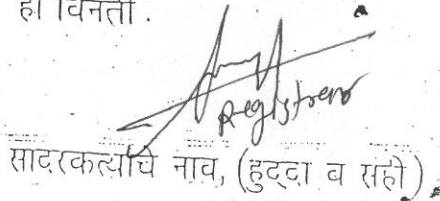 ही विनंती.
Registrar
सादरकर्त्याचे नाव, (हुद्दा व सही)